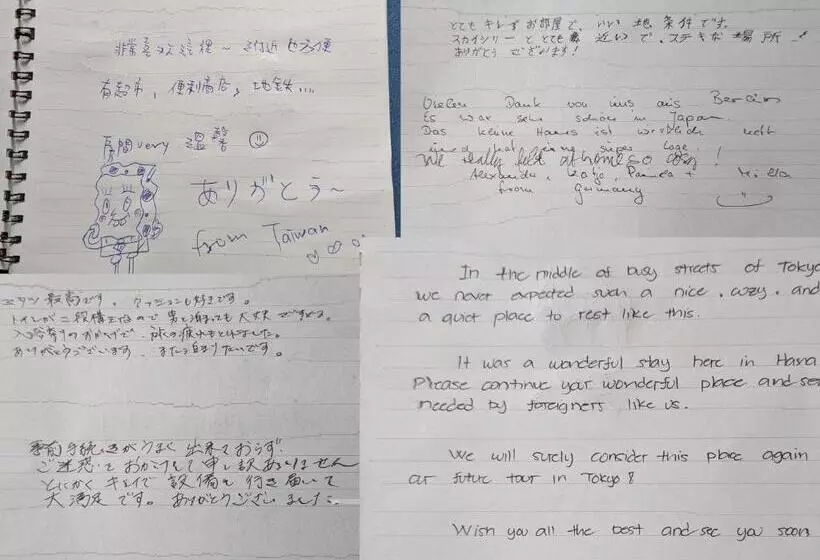 非常乾淨整理~ 附近也方便
有超市, 便利商店, 地鉄...
房間very 溫馨
ありがとう~
from Taiwan
とてもキレイなお部屋で、いい地条件です。
スカイツリーととても近いで、ステキな場所!
ありがとうございます!
Vielen Dank von uns aus Berlin
Es war sehr schön in Japan.
Das kleine Haus ist wirklich nett
und hat eine super Lage.
We really felt at home so cozy!
Alexandra, Katja, Pamela + Mila
from Germany
最高です。クッションも好きです。
トイレが二段構えなので男と泊っても大丈夫ですよね。
入浴剤のおかげで、旅の疲れもとれました。
ありがとうございます。また泊まりたいです。
事前手続きがうまく出来ておらず、
ご迷惑をおかけして申し訳ありません
とにかくキレイで設備も行き届いて
大満足です。ありがとうございました。
In the middle of busy streets of Tokyo
we never expected such a nice, cozy, and
a quiet place to rest like this.
It was a wonderful stay here in Hana
Please continue your wonderful place and ser
needed by foreigners like us.
We will surely consider this place again
our future tour in Tokyo!
Wish you all the best and see you soon